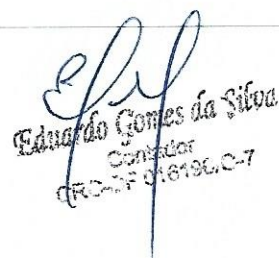 Eduardo Gomes da Silva
Contador
CRC-DF 016196/O-7